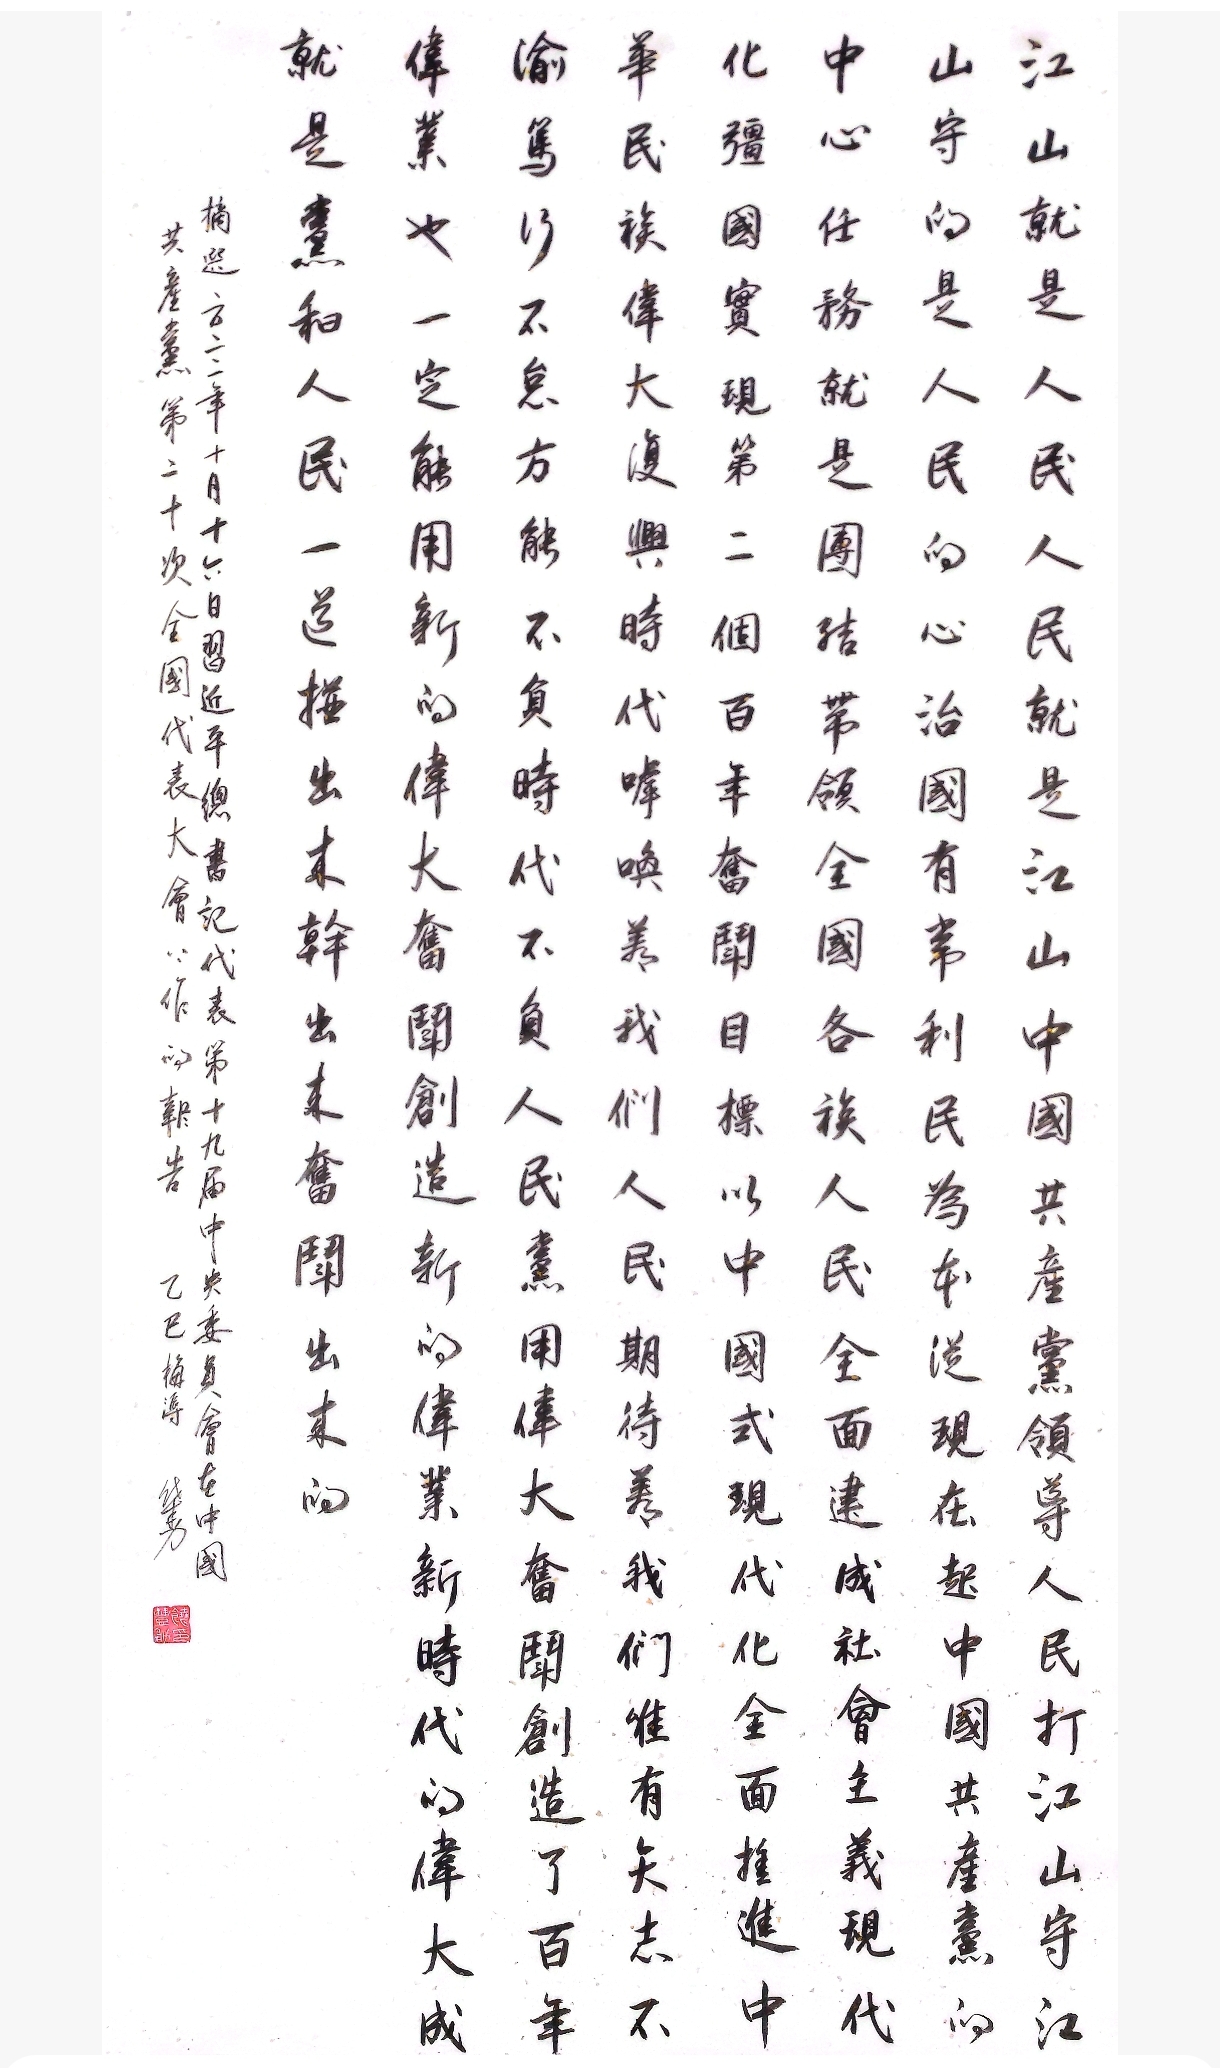 江山就是人民人民就是江山中國共產黨領導人民打江山守江
山守的是人民的心治國有常利民為本從現在起中國共產黨的
中心任務就是團結帶領全國各族人民全面建成社會主義現代
化彊國實現第二個百年奮鬪目標以中國式現代化全面推進中
華民族偉大復興時代嘩喚着我們人民期待着我們唯有矢志不
渝篤行不怠方能不負時代不負人民黨用偉大奮鬪創造了百年
偉業也一定能用新的偉大奮鬪創造新的偉業新時代的偉大成
就是黨和人民一道摚出来幹出来奮鬪出来的
摘選二二年十月十六日習近平總書記代表第十九届中央委員會在中國
共產黨第二十次全國代表大會上作的報告 乙巳梅